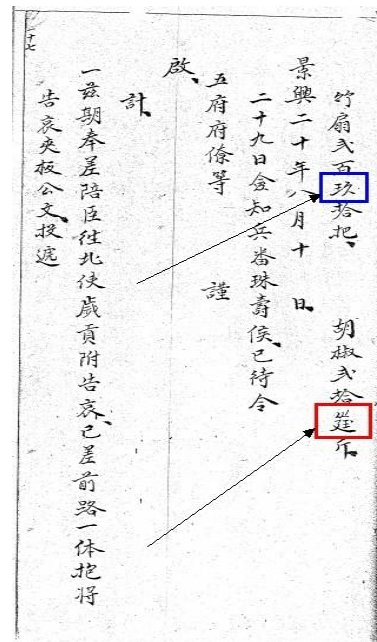 竹扇弍百玖拾把、 胡椒弍拾斤、
景興二十年八月十 日、
二十九日僉知兵番珠壽侯、已待令
五府府僚等 謹
啟、
計、
一茲期奉差陪臣徃北使歲貢附告哀、已差前路一体抱將
告哀夾板公文、投遞
十七